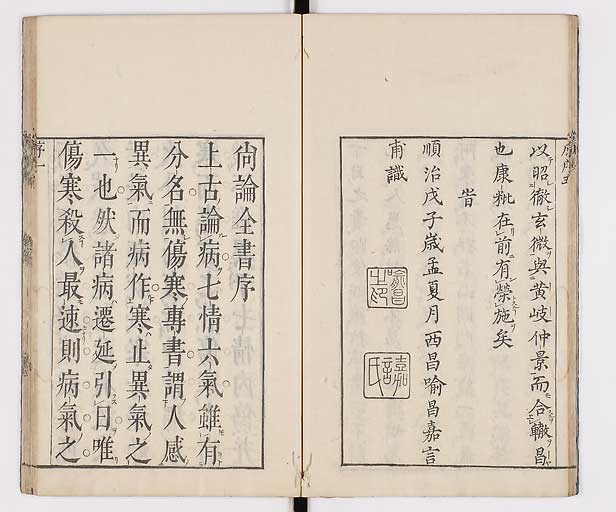 以昭徹玄微與黃岐仲景而合轍昌
也康粃在前有榮施矣
旹
順治戊子歲孟夏月西昌喻昌嘉言
甫識
喻昌之印
嘉言氏
尙論全書序
上古論病七情六氣雖有
分名無傷寒專書謂人感
異氣而病作寒止異氣之
一也然諸病遷延引日唯
傷寒殺人最速則病氣之
序一